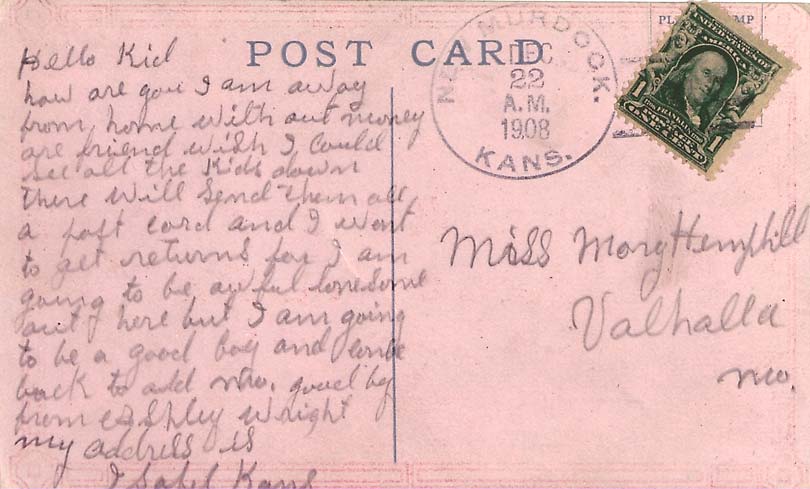 POST CARD
MURDOCK.
DEC
22
A.M.
1908
KANS.
Hello Kid
how are you I am away
from home with out money
are friend wish I could
see all the Kids down
there will send them all
a post cord and I wont
to get returns for I am
going to be awful lonesome
out here but I am going
to be a good boy and
back to old mo. good by
from Wright
my address is
Isabel Kans
Miss Mary Hemphill
Valhalla
mo.
1 1